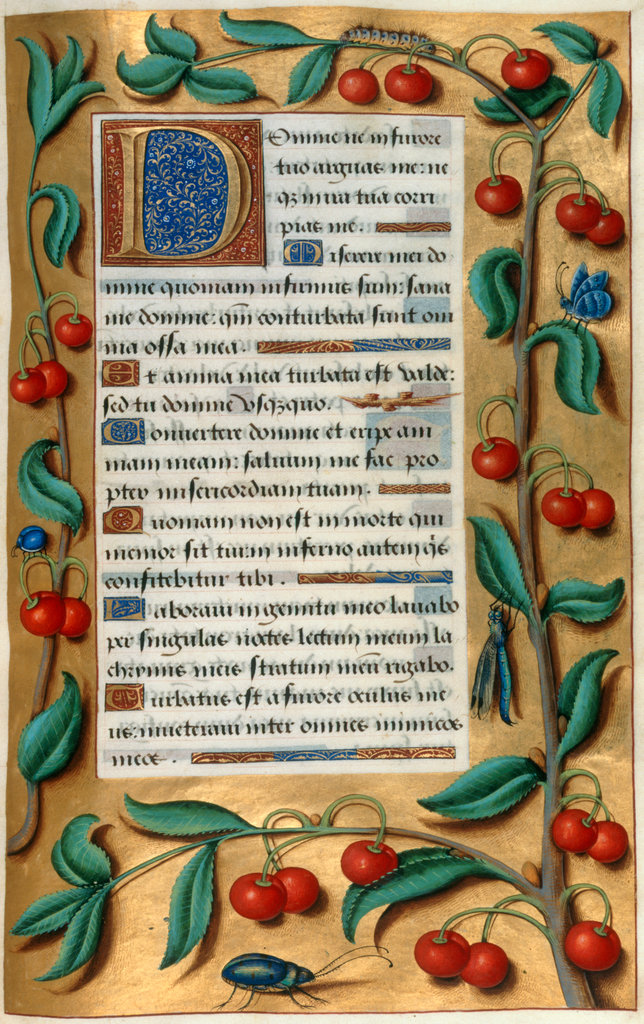 Domine ne in furore
tuo arguas me: ne
q̃ in ira tua corri
pias me.
Miserere mei do
mine quoniam infirmus sum: sana
me domine: qm̃ conturbata sunt om
nia ossa mea.
Et anima mea turbata est valde:
sed tu domine vsq̃quo.
Conuertere domine et eripe ani
mam meam: saluum me fac pro
pter misericordiam tuam.
Quoniam non est in morte qui
memor sit tui: in inferno autem q̃s
confitebitur tibi.
Laboraui in gemitu meo lauabo
per singulas noctes lectum meum la
chrymis meis stratum meũ rigabo.
Turbatus est a furore oculus me
us: inueteraui inter omnes inimicos
meos.